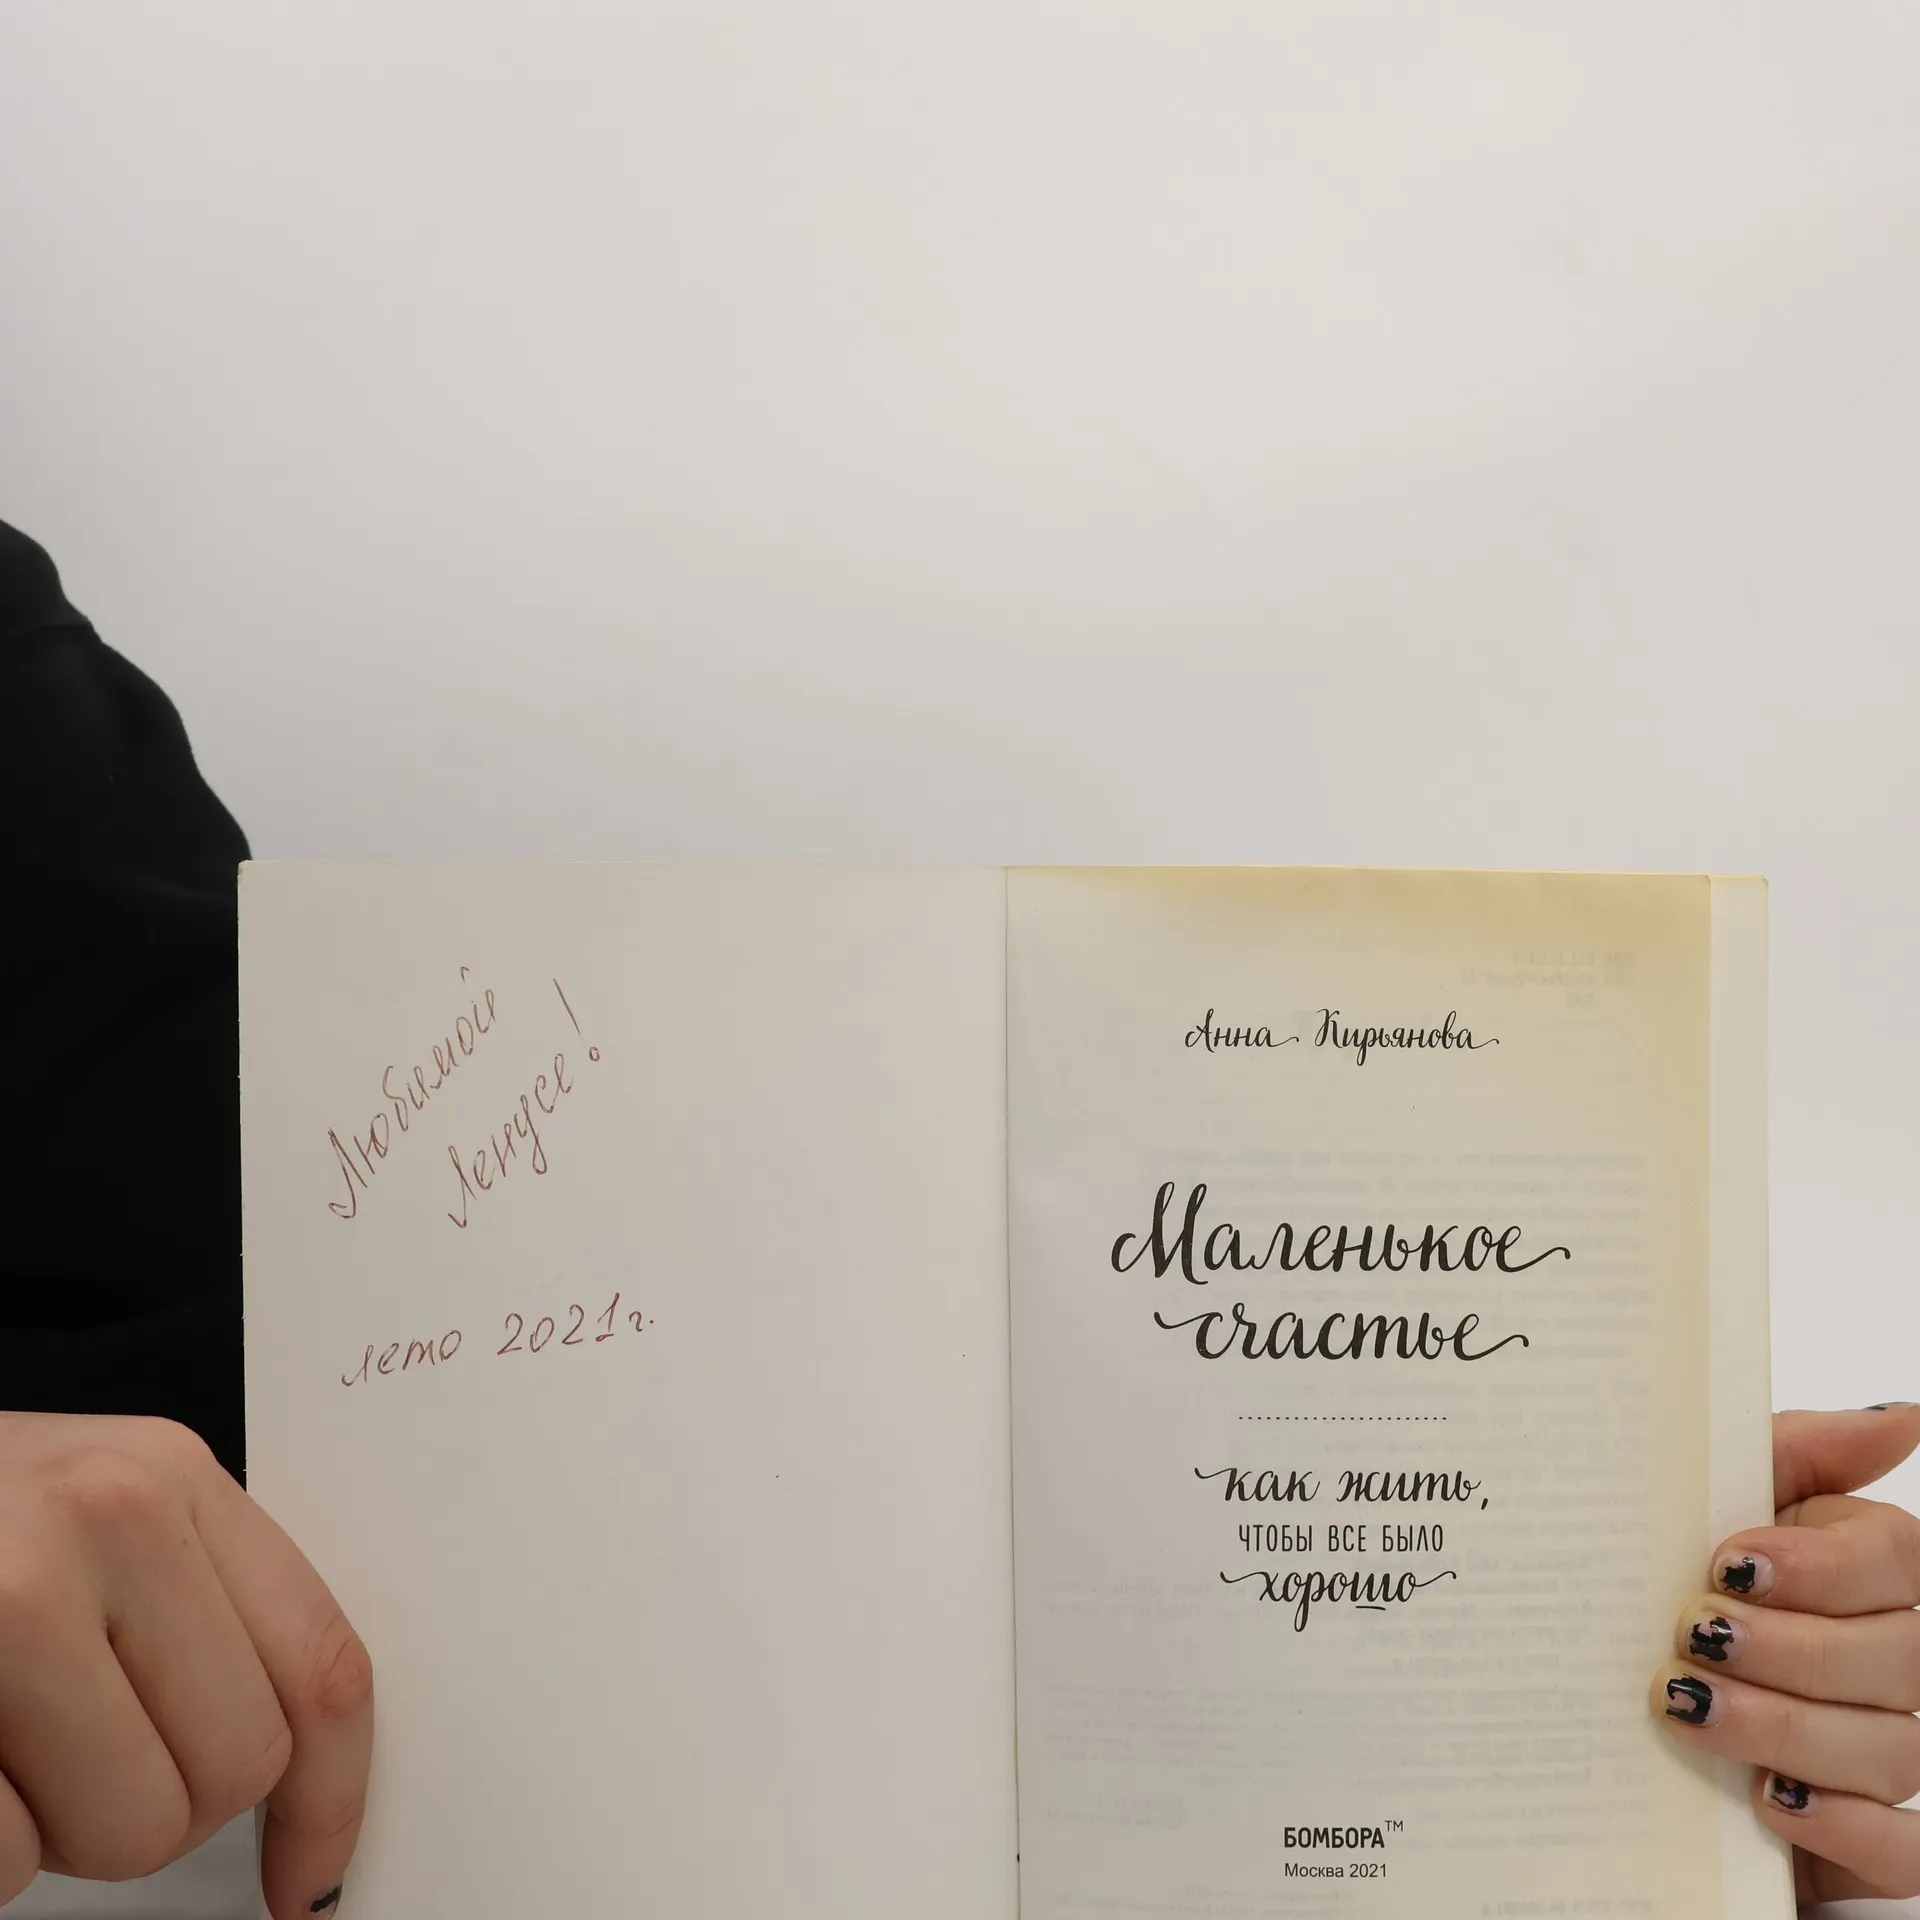 Любимой
Ленусе!
лето 2021г.
Анна Кирьянова
Маленькое
счастье
как жить,
ЧТОБЫ ВСЕ БЫЛО
хорошо
БОМБОРА™
Москва 2021